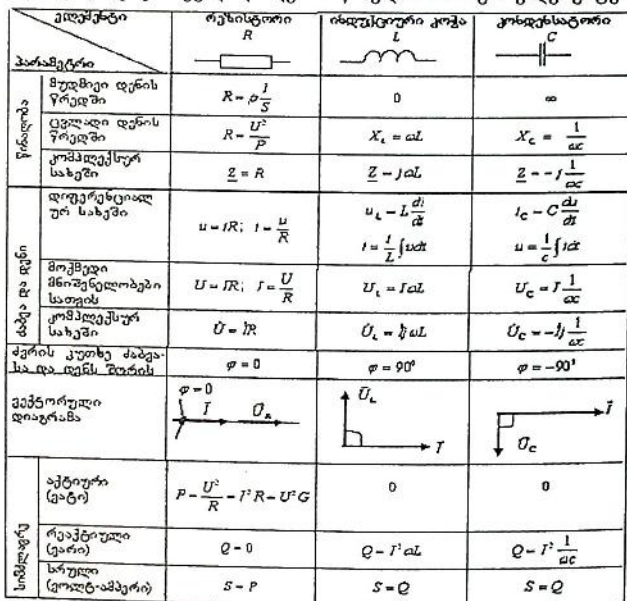 ელემენტი
პარამეტრი
რეზისტორი
R
ინდუქციური კოჭა
L
კონდენსატორი
C
წინაღობა
მუდმივი დენის
წრედში
R = ρ l/S
0
∞
ცვლადი დენის
წრედში
R = U²/P
X_L = ωL
X_C = 1/ωc
კომპლექსურ
სახეში
Z = R
Z = jωL
Z = -j 1/ωc
ძაბვა და დენი
დიფერენციალ
ურ სახეში
u = iR; i = u/R
u_L = L di/dt
i = 1/L ∫udt
i_C = C du/dt
u = 1/c ∫idt
მოქმედი
მნიშვნელობები
სათვის
U = IR; I = U/R
U_L = IωL
U_C = I 1/ωc
კომპლექსურ
სახეში
U̇ = İR
U̇_L = İjωL
U̇_C = -İj 1/ωc
ძვრის კუთხე ძაბვა-
სა და დენს შორის
φ = 0
φ = 90°
φ = -90°
ვექტორული
დიაგრამა
φ = 0
Ī
Ū_R
Ū_L
Ī
Ī
Ū_C
სიმძლავრე
აქტიური
(ვატი)
P = U²/R = I²R = U²G
0
0
რეაქტიული
(ვარი)
Q = 0
Q = I²ωL
Q = I² 1/ωc
სრული
(ვოლტ-ამპერი)
S = P
S = Q
S = Q